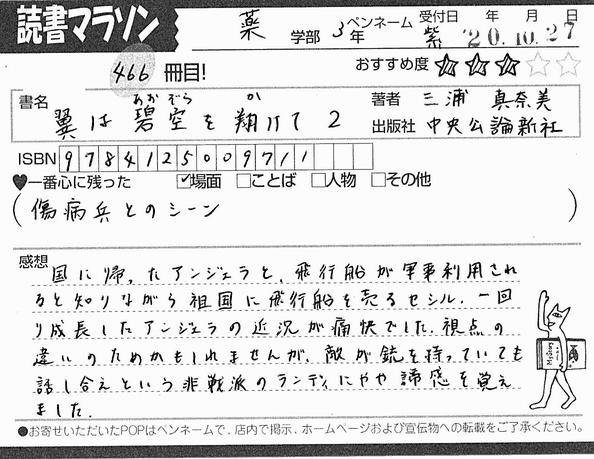 読書マラソン
薬 学部 3年 ペンネーム 紫 受付日 年 月 日 '20.10.27
466 冊目! おすすめ度 ★★★☆☆
書名 翼は碧空を翔けて 2 あおぞら か
著者 三浦 真奈美
出版社 中央公論新社
ISBN 9784125009711
♥一番心に残った ☑場面 □ことば □人物 □その他
(傷病兵とのシーン)
感想
国に帰ったアンジェラと、飛行船が軍事利用され
ると知りながら祖国に飛行船を売るセシル。一回
り成長したアンジェラの近況が痛快でした。視点の
違いのためかもしれませんが、敵が銃を持っていても
話し合えという非戦派のランディにやや諦感を覚え
ました。
●お寄せいただいたPOPはペンネームで、店内で掲示、ホームページおよび宣伝物への転載をご了承ください。